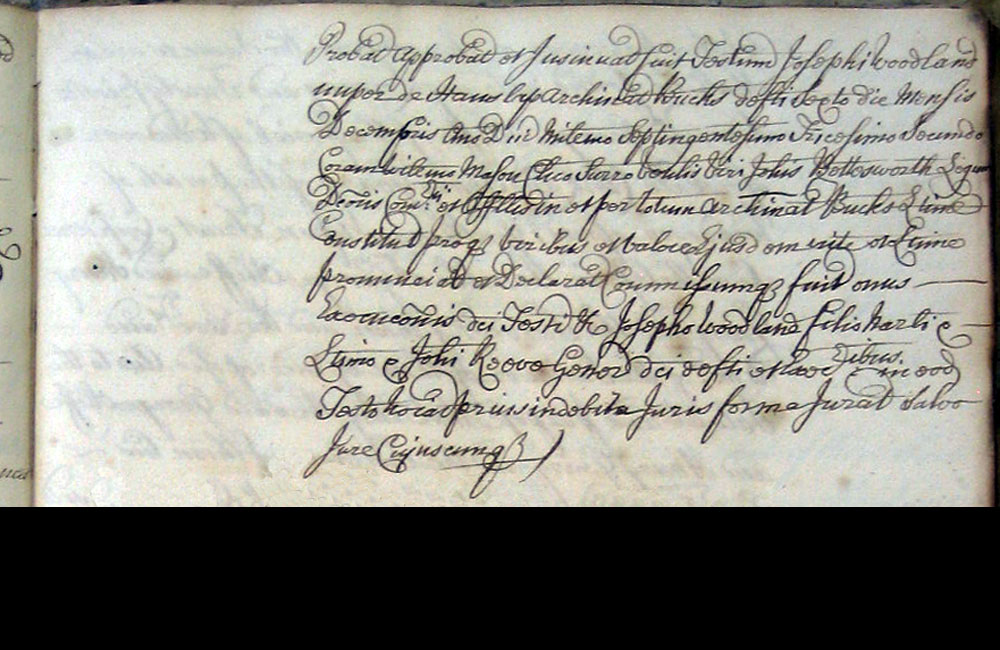 Probat Approbat et Insinuat fuit Testum Josephi Woodland
nuper de Hanslop Archinat Bucks defti Sexto die Mensis
Decembris Ano Dni Milemo Septingentesimo Tricesimo Secundo
Coram Wilmo Mason Clico Surro Venlis Viri Johis Bettesworth Legum
Dcoris Com:rij et Offilis in et per totum Archinat Bucks Ltime
Constitut proq3 viribus et valore Ejusdem rite et Ltime
pronunciat et Declarat Comissumq3 fuit onus
Executonis dci Testi &c Josepho Woodland filio narli e
Ltimo e Johi Reeve Generi dci defti et Exec ribus. in eod
Testo noiat prius in debita Juris forma Jurat Salvo
Jure Cujuscunq3